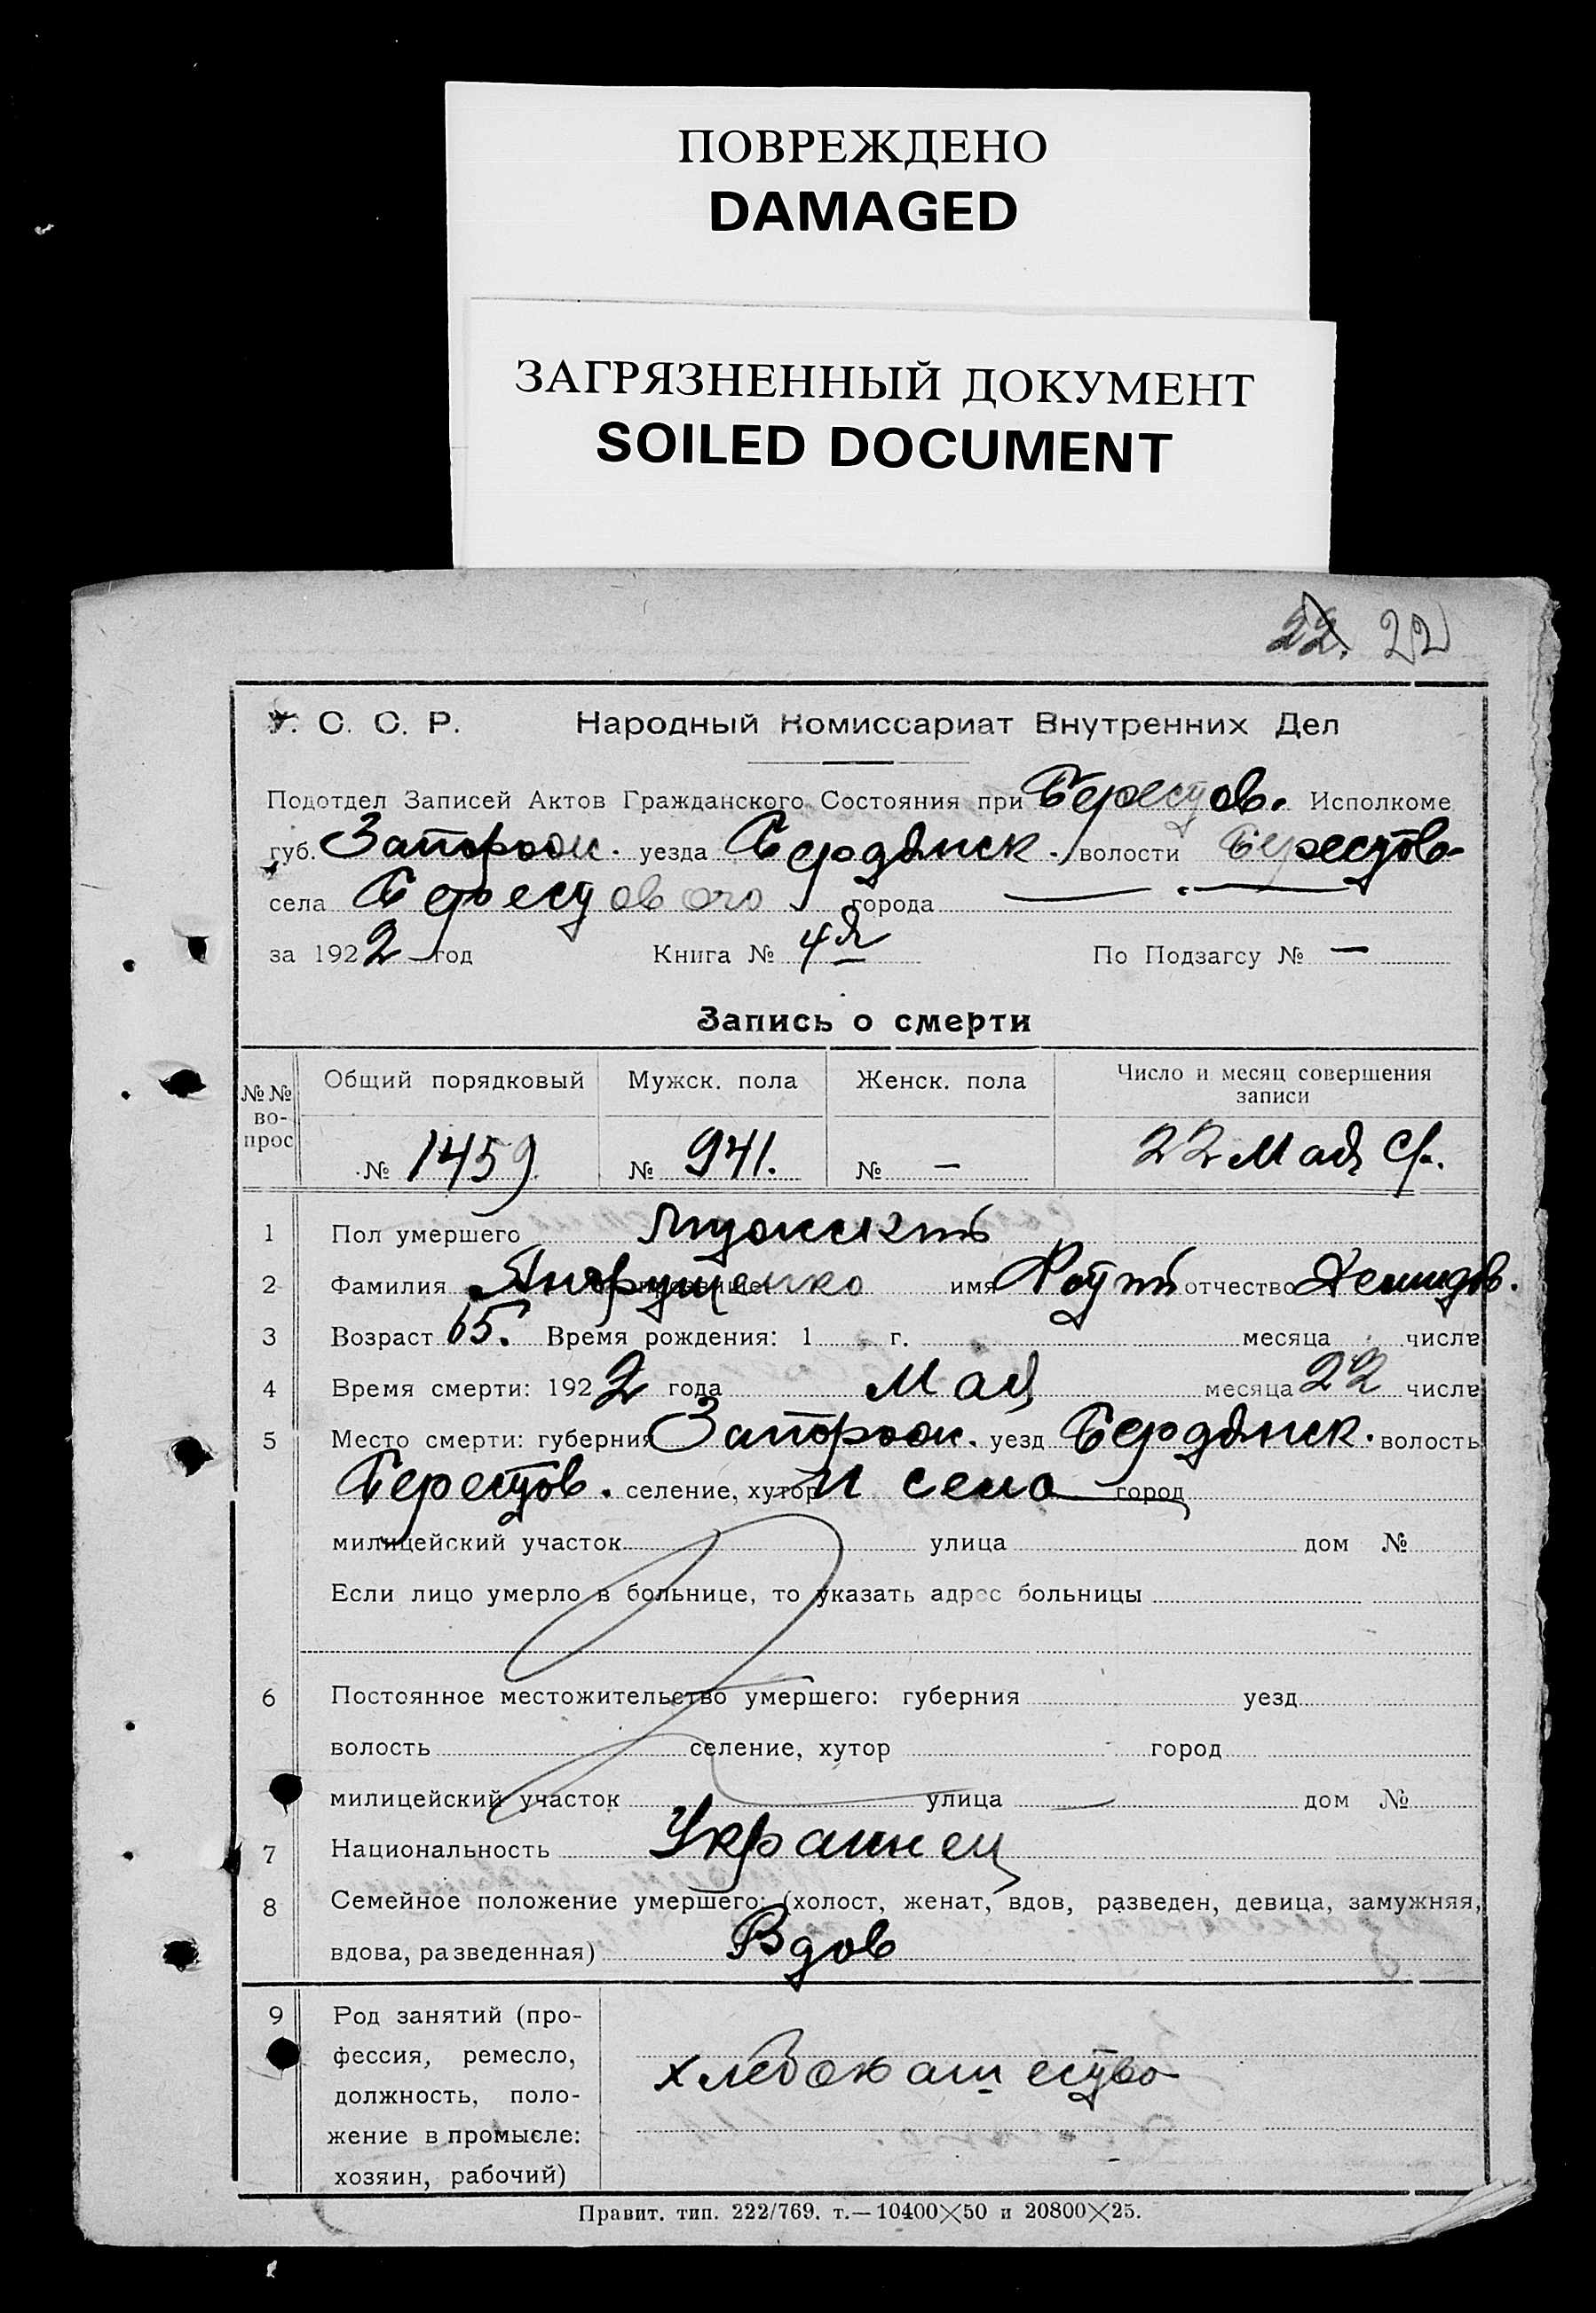 ПОВРЕЖДЕНО
DAMAGED
ЗАГРЯЗНЕННЫЙ ДОКУМЕНТ
SOILED DOCUMENT
22. 22
У. С. С. Р. Народный Комиссариат Внутренних Дел
Подотдел Записей Актов Гражданского Состояния при Берестов. Исполкоме
губ. Запорож. уезда Бердянск. волости Берестов-
села Берестового города —
за 1922 год Книга № 4я По Подзагсу № —
Запись о смерти
№№ вопрос Общий порядковый Мужск. пола Женск. пола Число и месяц совершения записи
№ 1459 № 941. № — 22 Мая
1 Пол умершего Мужской
2 Фамилия Андрущенко имя отчество Демидов.
3 Возраст 65. Время рождения: 1 г. месяца числа
4 Время смерти: 1922 года Мая месяца 22 числа
5 Место смерти: губерния Запорож. уезд Бердянск. волость
Берестов. селение, хутор село город
милицейский участок улица дом №
Если лицо умерло в больнице, то указать адрес больницы
6 Постоянное местожительство умершего: губерния уезд
волость селение, хутор город
милицейский участок улица дом №
7 Национальность Украинец
8 Семейное положение умершего: (холост, женат, вдов, разведен, девица, замужняя,
вдова, разведенная) Вдов
9 Род занятий (про-
фессия, ремесло,
должность, поло-
жение в промысле:
хозяин, рабочий)
хлебопашество
Правит. тип. 222/769. т.—10400×50 и 20800×25.